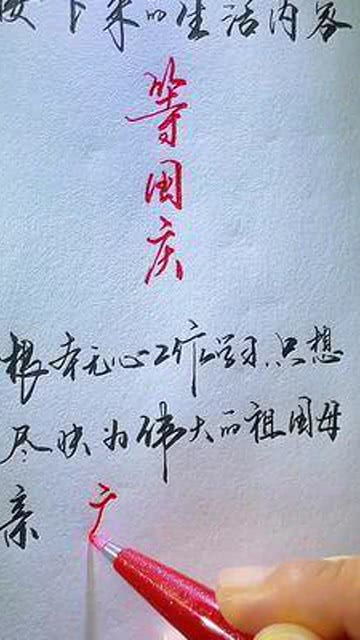 接下来的生活内容
等
国
庆
根本无心工作学习.只想
尽快为伟大的祖国母
亲 广